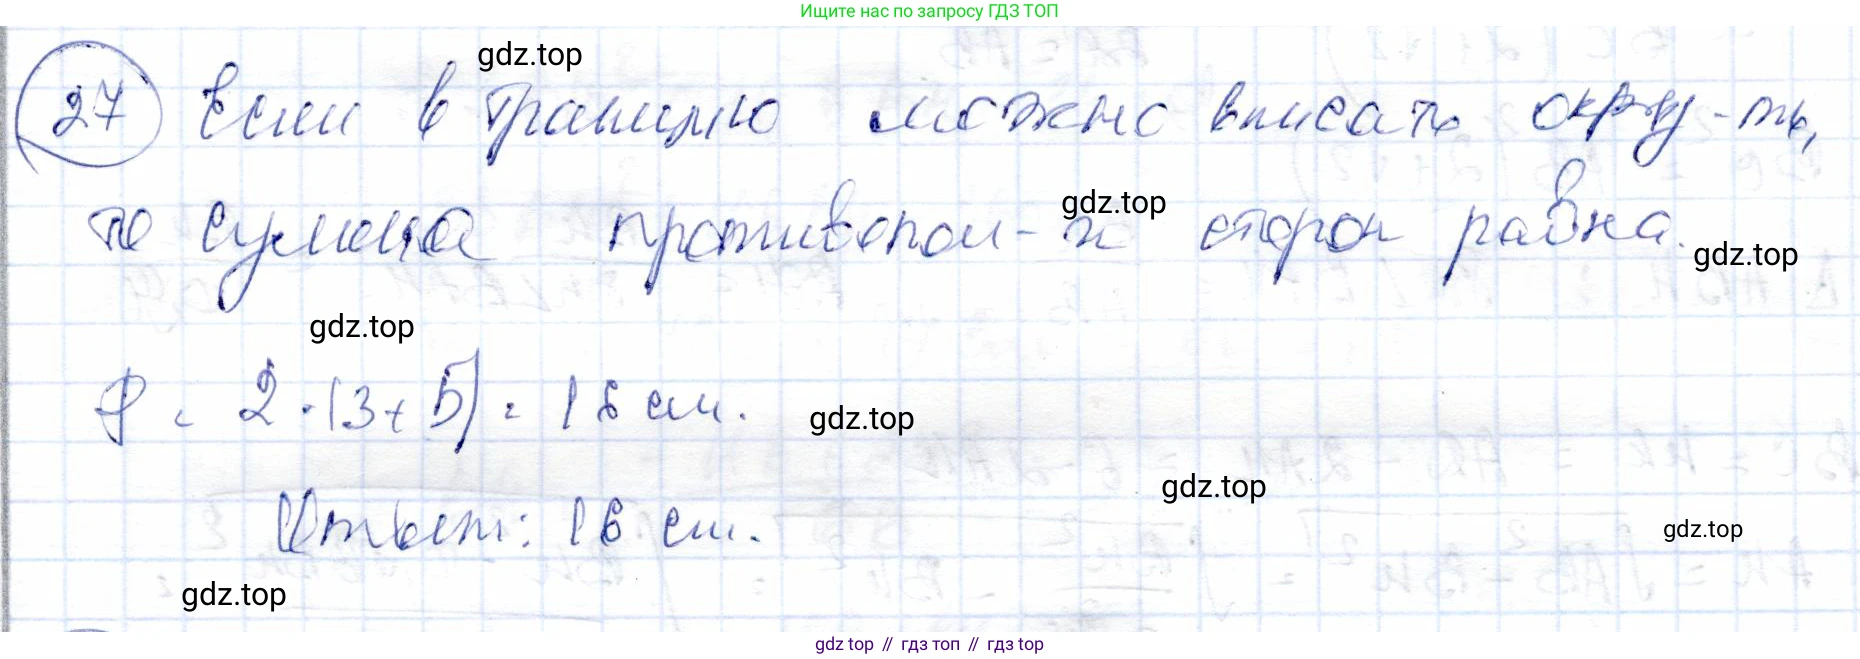 Ищите нас по запросу ГДЗ ТОП
gdz.top
27 Если в трапецию можно вписать окру-ть,
gdz.top
то сумма противопол-х сторон равна.
gdz.top
gdz.top
P = 2·(3+5) = 16 см.
gdz.top
gdz.top
Ответ: 16 см.
gdz.top
gdz.top
gdz top // гдз топ // гдз top